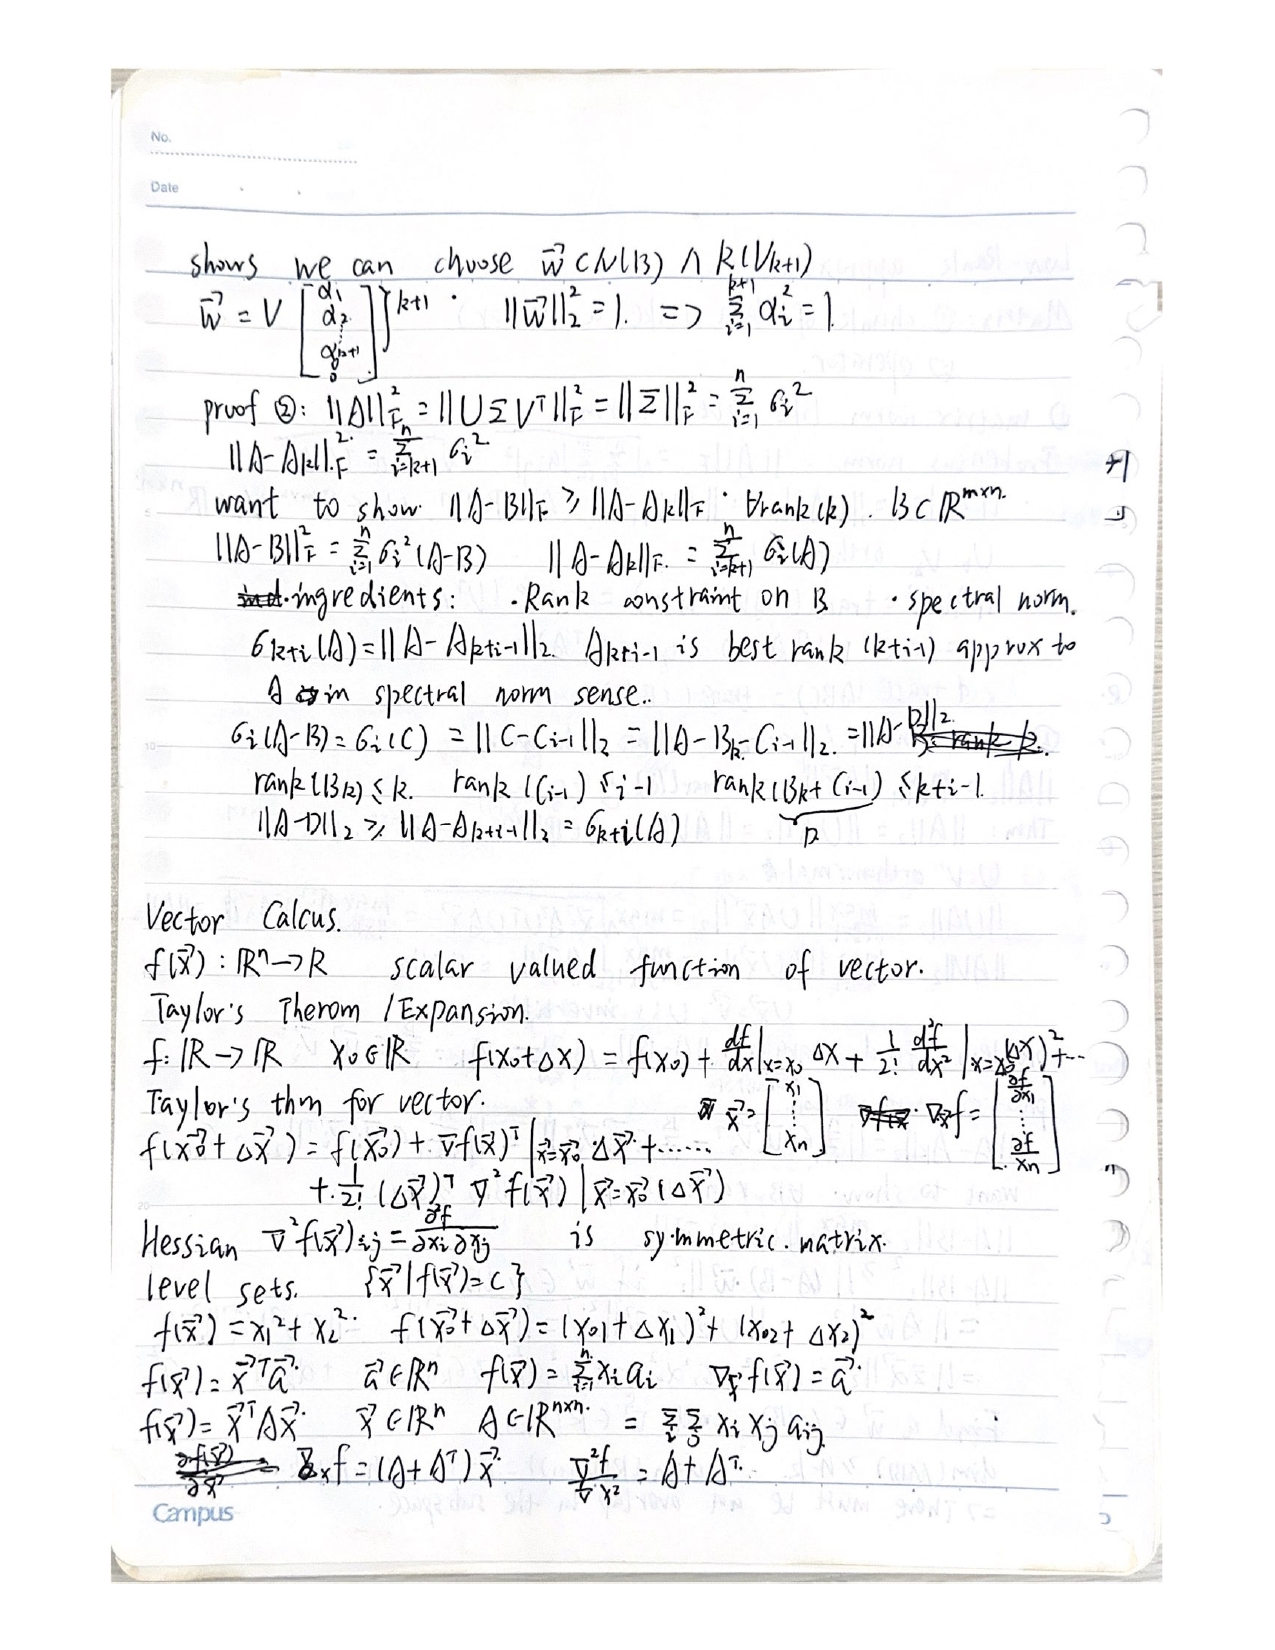 No.
Date
shows we can choose w⃗ ⊂ N(B) ∩ R(V_{k+1})
w⃗ = V [α₁ α₂ ⋮ α_{k+1} 0] } k+1 . ||w⃗||₂² = 1. => Σ_{i=1}^{k+1} αᵢ² = 1.
proof ②: ||A||_F² = ||UΣVᵀ||_F² = ||Σ||_F² = Σ_{i=1}^{n} σᵢ²
||A-A_k||_F² = Σ_{i=k+1}^{n} σᵢ²
want to show. ||A-B||_F ≥ ||A-A_k||_F . ∀rank(k). B ⊂ ℝ^{m×n}.
||A-B||_F² = Σ_{i=1}^{n} σᵢ²(A-B) ||A-A_k||_F. = Σ_{i=k+1}^{n} σᵢ²(A)
ingredients: ·Rank constraint on B ·spectral norm.
σ_{k+i}(A) = ||A-A_{k+i-1}||₂. A_{k+i-1} is best rank (k+i-1) approx to
A in spectral norm sense..
σᵢ(A-B) = σᵢ(C) = ||C-C_{i-1}||₂ = ||A-B_k-C_{i-1}||₂. = ||A-D||₂.
rank(B_k) ≤ k. rank(C_{i-1}) ≤ i-1 rank(B_k+C_{i-1}) ≤ k+i-1.
||A-D||₂ ≥ ||A-A_{k+i-1}||₂ = σ_{k+i}(A) D
Vector Calcus.
f(x⃗): ℝⁿ → ℝ scalar valued function of vector.
Taylor's Therom / Expansion.
f: ℝ → ℝ x₀ ∈ ℝ f(x₀+Δx) = f(x₀) + df/dx|_{x=x₀} Δx + 1/2! d²f/dx²|_{x=x₀} (Δx)² + ...
Taylor's thm for vector. x⃗ = [x₁ ⋮ xₙ] ∇_x⃗ f = [∂f/∂x₁ ⋮ ∂f/xₙ]
f(x⃗₀ + Δx⃗) = f(x⃗₀) + ∇f(x⃗)ᵀ|_{x⃗=x⃗₀} Δx⃗ + ......
+ 1/2! (Δx⃗)ᵀ ∇²f(x⃗)|_{x⃗=x⃗₀} (Δx⃗)
Hessian ∇²f(x⃗)ᵢⱼ = ∂²f/∂xᵢ∂xⱼ is symmetric matrix.
level sets. {x⃗ | f(x⃗) = c}
f(x⃗) = x₁² + x₂². f(x⃗₀ + Δx⃗) = (x₀₁ + Δx₁)² + (x₀₂ + Δx₂)²
f(x⃗) = x⃗ᵀa⃗. a⃗ ∈ ℝⁿ f(x⃗) = Σ_{i=1}^{n} xᵢaᵢ ∇_x⃗ f(x⃗) = a⃗.
f(x⃗) = x⃗ᵀAx⃗. x⃗ ∈ ℝⁿ A ∈ ℝ^{n×n}. = Σᵢ Σⱼ xᵢ xⱼ aᵢⱼ.
∇ₓf = (A+Aᵀ)x⃗. ∇²f/∇x² = A+Aᵀ.
Campus